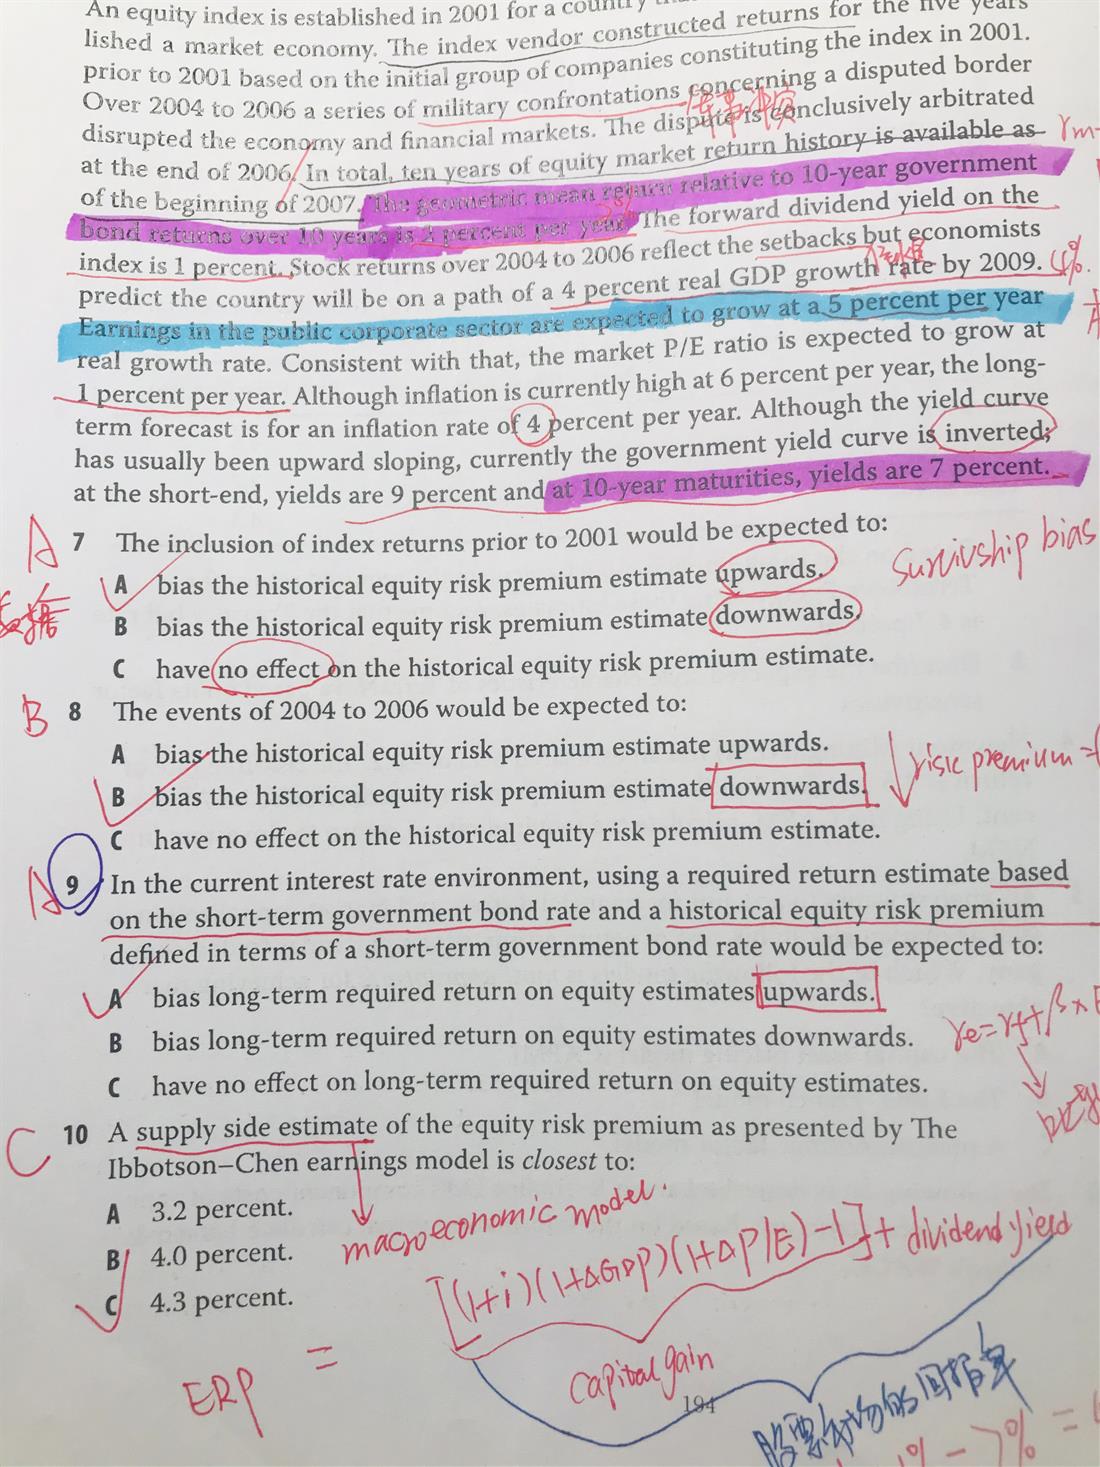 An equity index is established in 2001 for a country
lished a market economy. The index vendor constructed returns for the five years
prior to 2001 based on the initial group of companies constituting the index in 2001.
Over 2004 to 2006 a series of military confrontations concerning a disputed border
disrupted the economy and financial markets. The dispute is conclusively arbitrated
at the end of 2006. In total, ten years of equity market return history is available as
of the beginning of 2007. The geometric mean return relative to 10-year government
bond returns over 10 years is 2 percent per year. The forward dividend yield on the
index is 1 percent. Stock returns over 2004 to 2006 reflect the setbacks but economists
predict the country will be on a path of a 4 percent real GDP growth rate by 2009. 4%.
Earnings in the public corporate sector are expected to grow at a 5 percent per year
real growth rate. Consistent with that, the market P/E ratio is expected to grow at
1 percent per year. Although inflation is currently high at 6 percent per year, the long-
term forecast is for an inflation rate of 4 percent per year. Although the yield curve
has usually been upward sloping, currently the government yield curve is inverted;
at the short-end, yields are 9 percent and at 10-year maturities, yields are 7 percent.
A 7 The inclusion of index returns prior to 2001 would be expected to:
Survivship bias
A bias the historical equity risk premium estimate upwards.
B bias the historical equity risk premium estimate downwards.
C have no effect on the historical equity risk premium estimate.
B 8 The events of 2004 to 2006 would be expected to:
A bias the historical equity risk premium estimate upwards.
B bias the historical equity risk premium estimate downwards.
risk premium =
C have no effect on the historical equity risk premium estimate.
A 9 In the current interest rate environment, using a required return estimate based
on the short-term government bond rate and a historical equity risk premium
defined in terms of a short-term government bond rate would be expected to:
A bias long-term required return on equity estimates upwards.
B bias long-term required return on equity estimates downwards.
re=rf+β×
C have no effect on long-term required return on equity estimates.
C 10 A supply side estimate of the equity risk premium as presented by The
Ibbotson–Chen earnings model is closest to:
A 3.2 percent.
macroeconomic model.
B 4.0 percent.
[(1+i)(1+ΔGDP)(1+ΔP/E)-1]+dividend yield
C 4.3 percent.
ERP =
capital gain
194
股票市场的回报率
% - 7% =